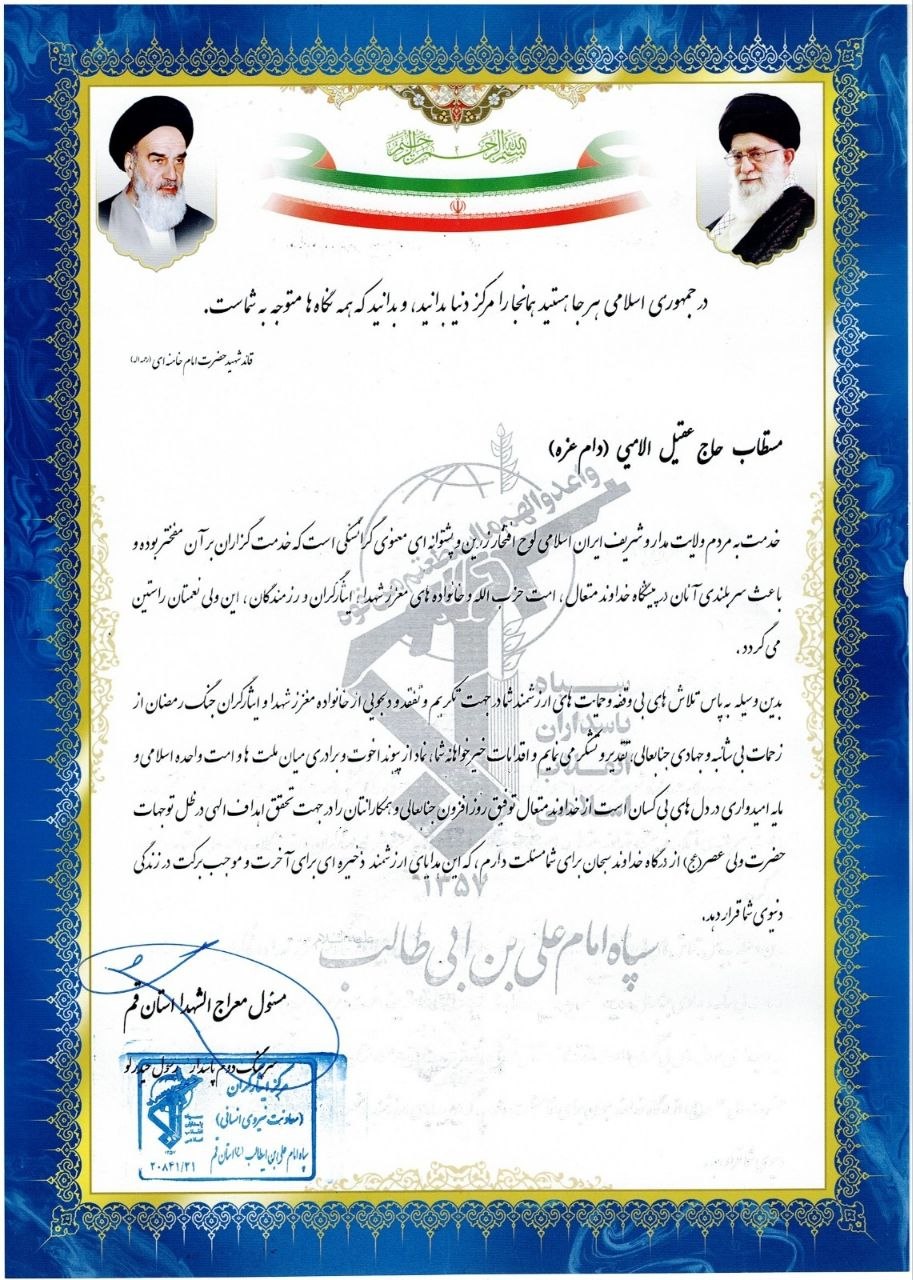 بسم الله الرحمن الرحیم
در جمهوری اسلامی هر جا هستید همانجا را مرکز دنیا بدانید، و بدانید که همه نگاه ها متوجه به شماست.
قائد شهید حضرت امام خامنه ای (رحمه الله)
مستطاب حاج عقیل الامیی (دام عزه)
خدمت به مردم ولایت مدار و شریف ایران اسلامی لوح افتخار زرین و پشتوانه ای معنوی گرانسنگی است که خدمت گزاران بر آن مفتخر بوده و
باعث سربلندی آنان در پیشگاه خداوند متعال، امت حزب الله و خانواده های معزز شهدا، ایثارگران و رزمندگان، این ولی نعمتان راستین
می گردد.
بدین وسیله به پاس تلاش های بی وقفه و حمایت های ارزشمند شما در جهت تکریم و تفقد و دلجویی از خانواده معزز شهدا و ایثارگران جنگ رمضان از
زحمات بی شائبه و جهادی جنابعالی تقدیر و تشکر می نمایم و اقدامات خیرخواهانه شما، نماد از پیوند اخوت و برادری میان ملت ها و امت واحده اسلامی و
مایه امیدواری در دل های بی کسان است. از خداوند متعال توفیق روز افزون جنابعالی و همکارانتان را در جهت تحقق اهداف الهی در ظل توجهات
حضرت ولی عصر(عج) از درگاه خداوند سبحان برای شما مسئلت دارم، که این هدایای ارزشمند ذخیره ای برای آخرت و موجب برکت در زندگی
دنیوی شما قرار دهد.
واعدوا لهم ما استطعتم من قوه
سپاه
پاسداران
انقلاب
اسلامی
۱۳۵۷
سپاه امام علی بن ابی طالب علیه السلام
مسئول معراج الشهدا استان قم
سرهنگ دوم پاسدار رسول حیدرلو
مرکز ایثارگران
(معاونت نیروی انسانی)
سپاه امام علی بن ابیطالب (ع) استان قم
سپاه
پاسداران
انقلاب
اسلامی
۱۳۵۷
۲۰۸۴۱/۲۱